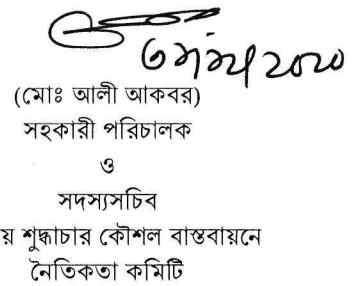 ২০২০
(মোঃ আলী আকবর)
সহকারী পরিচালক
ও
সদস্যসচিব
য় শুদ্ধাচার কৌশল বাস্তবায়নে
নৈতিকতা কমিটি